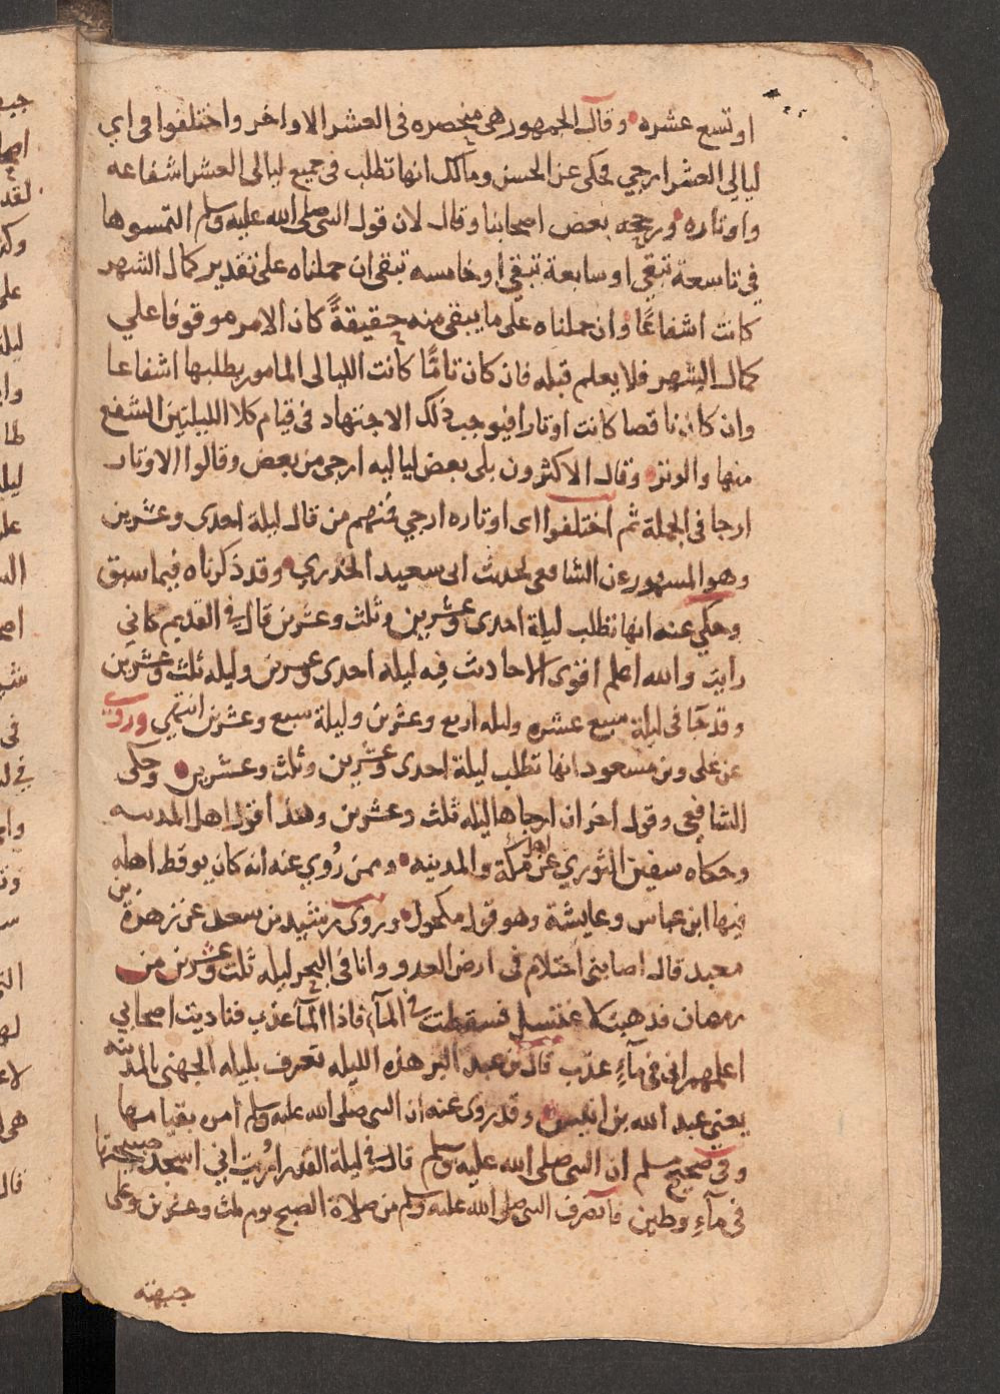 او تسع عشره وقال الجمهور هى منحصره فى العشر الاواخر واختلفوا فى اي
ليالي العشر ارجي فحكى عن الحسن ومالك انها تطلب فى جميع ليالى العشر اشفاعه
واوتاره ورجحه بعض اصحابنا وقال لان قول النبى صلى الله عليه وسلم التمسوها
في تاسعة تبقي او سابعة تبقي او خامسه تبقى ان حملناه على تقدير كمال الشهر
كانت اشفاعًا وان حملناه على ما يبقى منه حقيقةً كان الامر موقوفا علي
كمال الشهر فلا يعلم قبله فان كان تامًّا كانت الليالى المامور بطلبها اشفاعا
وان كان ناقصا كانت اوتارا فيوجب ذلك الاجتهاد فى قيام كلا الليلتين الشفع
منها والوتر وقال الاكثرون بلى بعض لياليه ارجى من بعض وقالوا الاوتار
ارجا فى الجملة ثم اختلفوا اى اوتاره ارجي فمنهم من قال ليلة احدى وعشرين
وهو المشهور عن الشافعى لحديث ابى سعيد الخدري وقد ذكرناه فيما سبق
وحكي عنه انها تطلب ليلة احدى وعشرين وثلث وعشرين قال فى القديم كانى
رايت والله اعلم اقوى الاحاديث فيه ليله احدى وعشرين وليله ثلث وعشرين
وقد جا فى ليلة سبع عشره وليله اربع وعشرين وليلة سبع وعشرين انتهي وروي
عن على وبن مسعود انها تطلب ليلة احدى وعشرين وثلث وعشرين وحكى
الشافعي وقول اخر ان ارجاها ليله ثلث وعشرين وهذا قول اهل المدينه
وحكاه سفين الثوري عن اهل مكة والمدينه وممن رُوي عنه انه كان يوقظ اهله
فيها ابن عباس وعايشة وهو قول مكحول وروى رشيد بن سعد عن زهرة بن
معبد قال اصابنى احتلام فى ارض العدو وانا فى البحر ليله ثلث وعشرين من
رمضان فذهبت لاغتسل فسقطت فى المآء فاذا المآ عذب فناديت اصحابي
اعلمهم انى فى مآءٍ عذب قال بن عبد البر هذه الليله تعرف بليله الجهنى بالمدينه
يعني عبد الله بن انيس وقد روى عنه ان النبى صلى الله عليه وسلم امره بقيامها
وفى صحيح مسلم ان النبى صلى الله عليه وسلم قال فى ليلة القدر اُريت اني اسجد صبيحتها
فى مآءٍ وطين فانصرف النبى صلى الله عليه وسلم من صلاة الصبح يوم ثلث وعشرين وعلى
جبهته